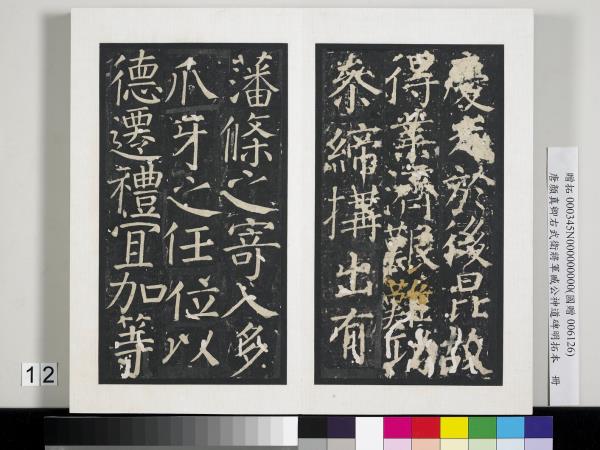 慶於後昆故
得業濟艱難功
叅締搆出有
藩條之寄入多
爪牙之任位以
德遷禮冝加等
贈拓 000345N000000000(國贈 006126)
唐顏真卿右武衛將軍臧公神道碑明拓本 冊
12